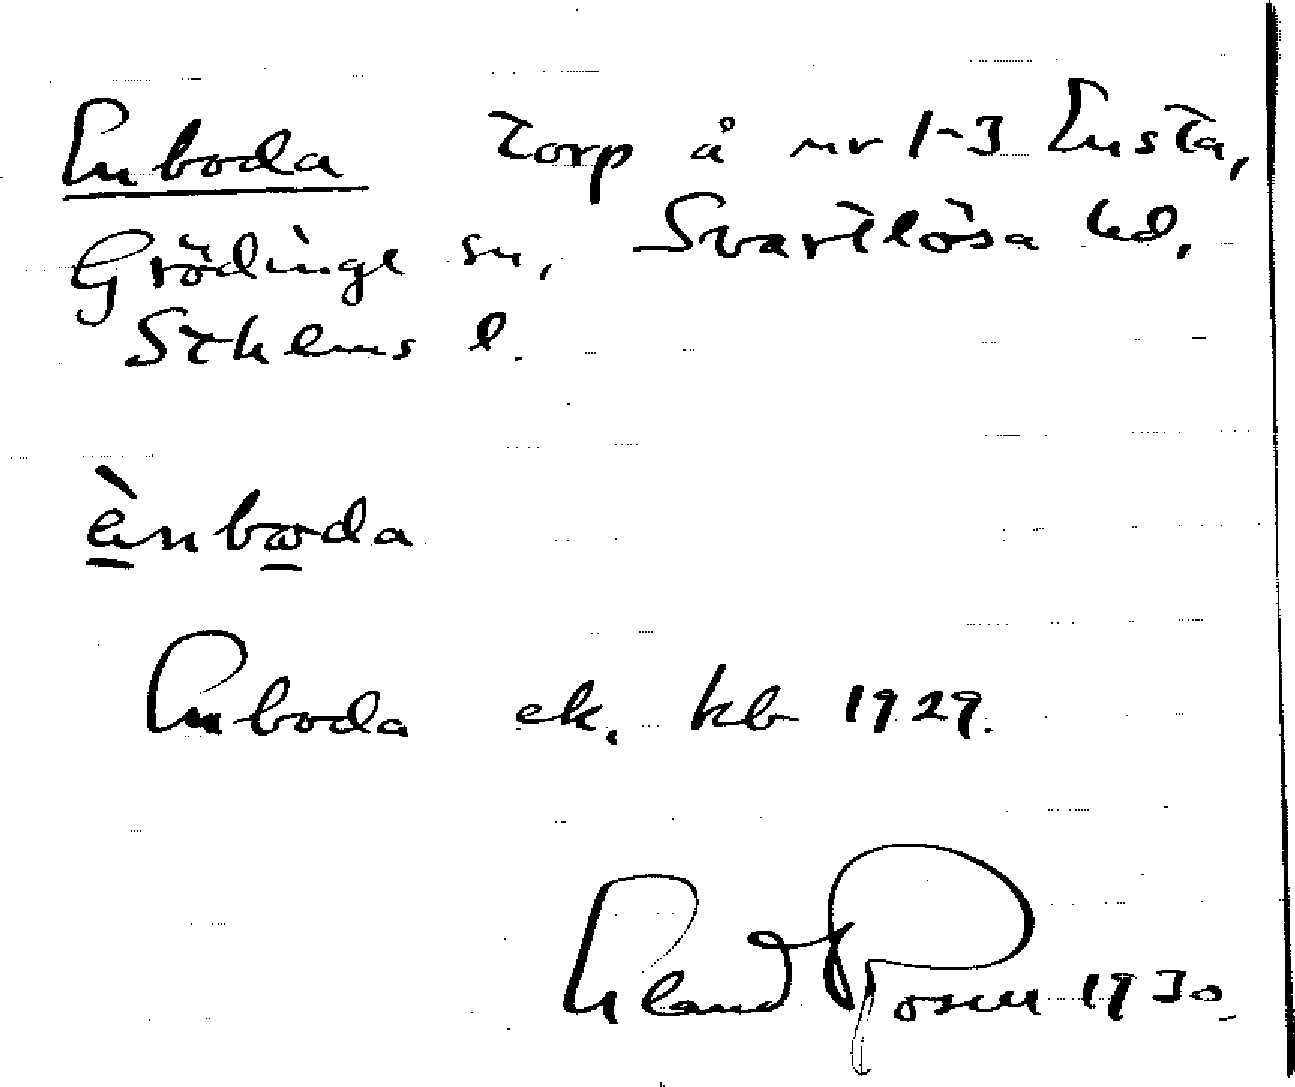 Enboda torp å nr 1-3 Ensta,
Grödinge sn, Svartlösa hd,
Sthlms l.
ènboda
Enboda ek. kb 1929.
Erland Rosell 1930.